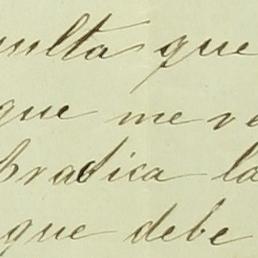 sulta que
que me re
cratica la
que debe